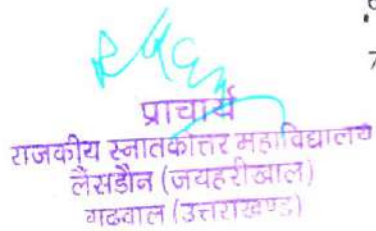 प्राचार्य
राजकीय स्नातकोत्तर महाविद्यालय
लैंसडौन (जयहरीखाल)
गढवाल (उत्तराखण्ड)